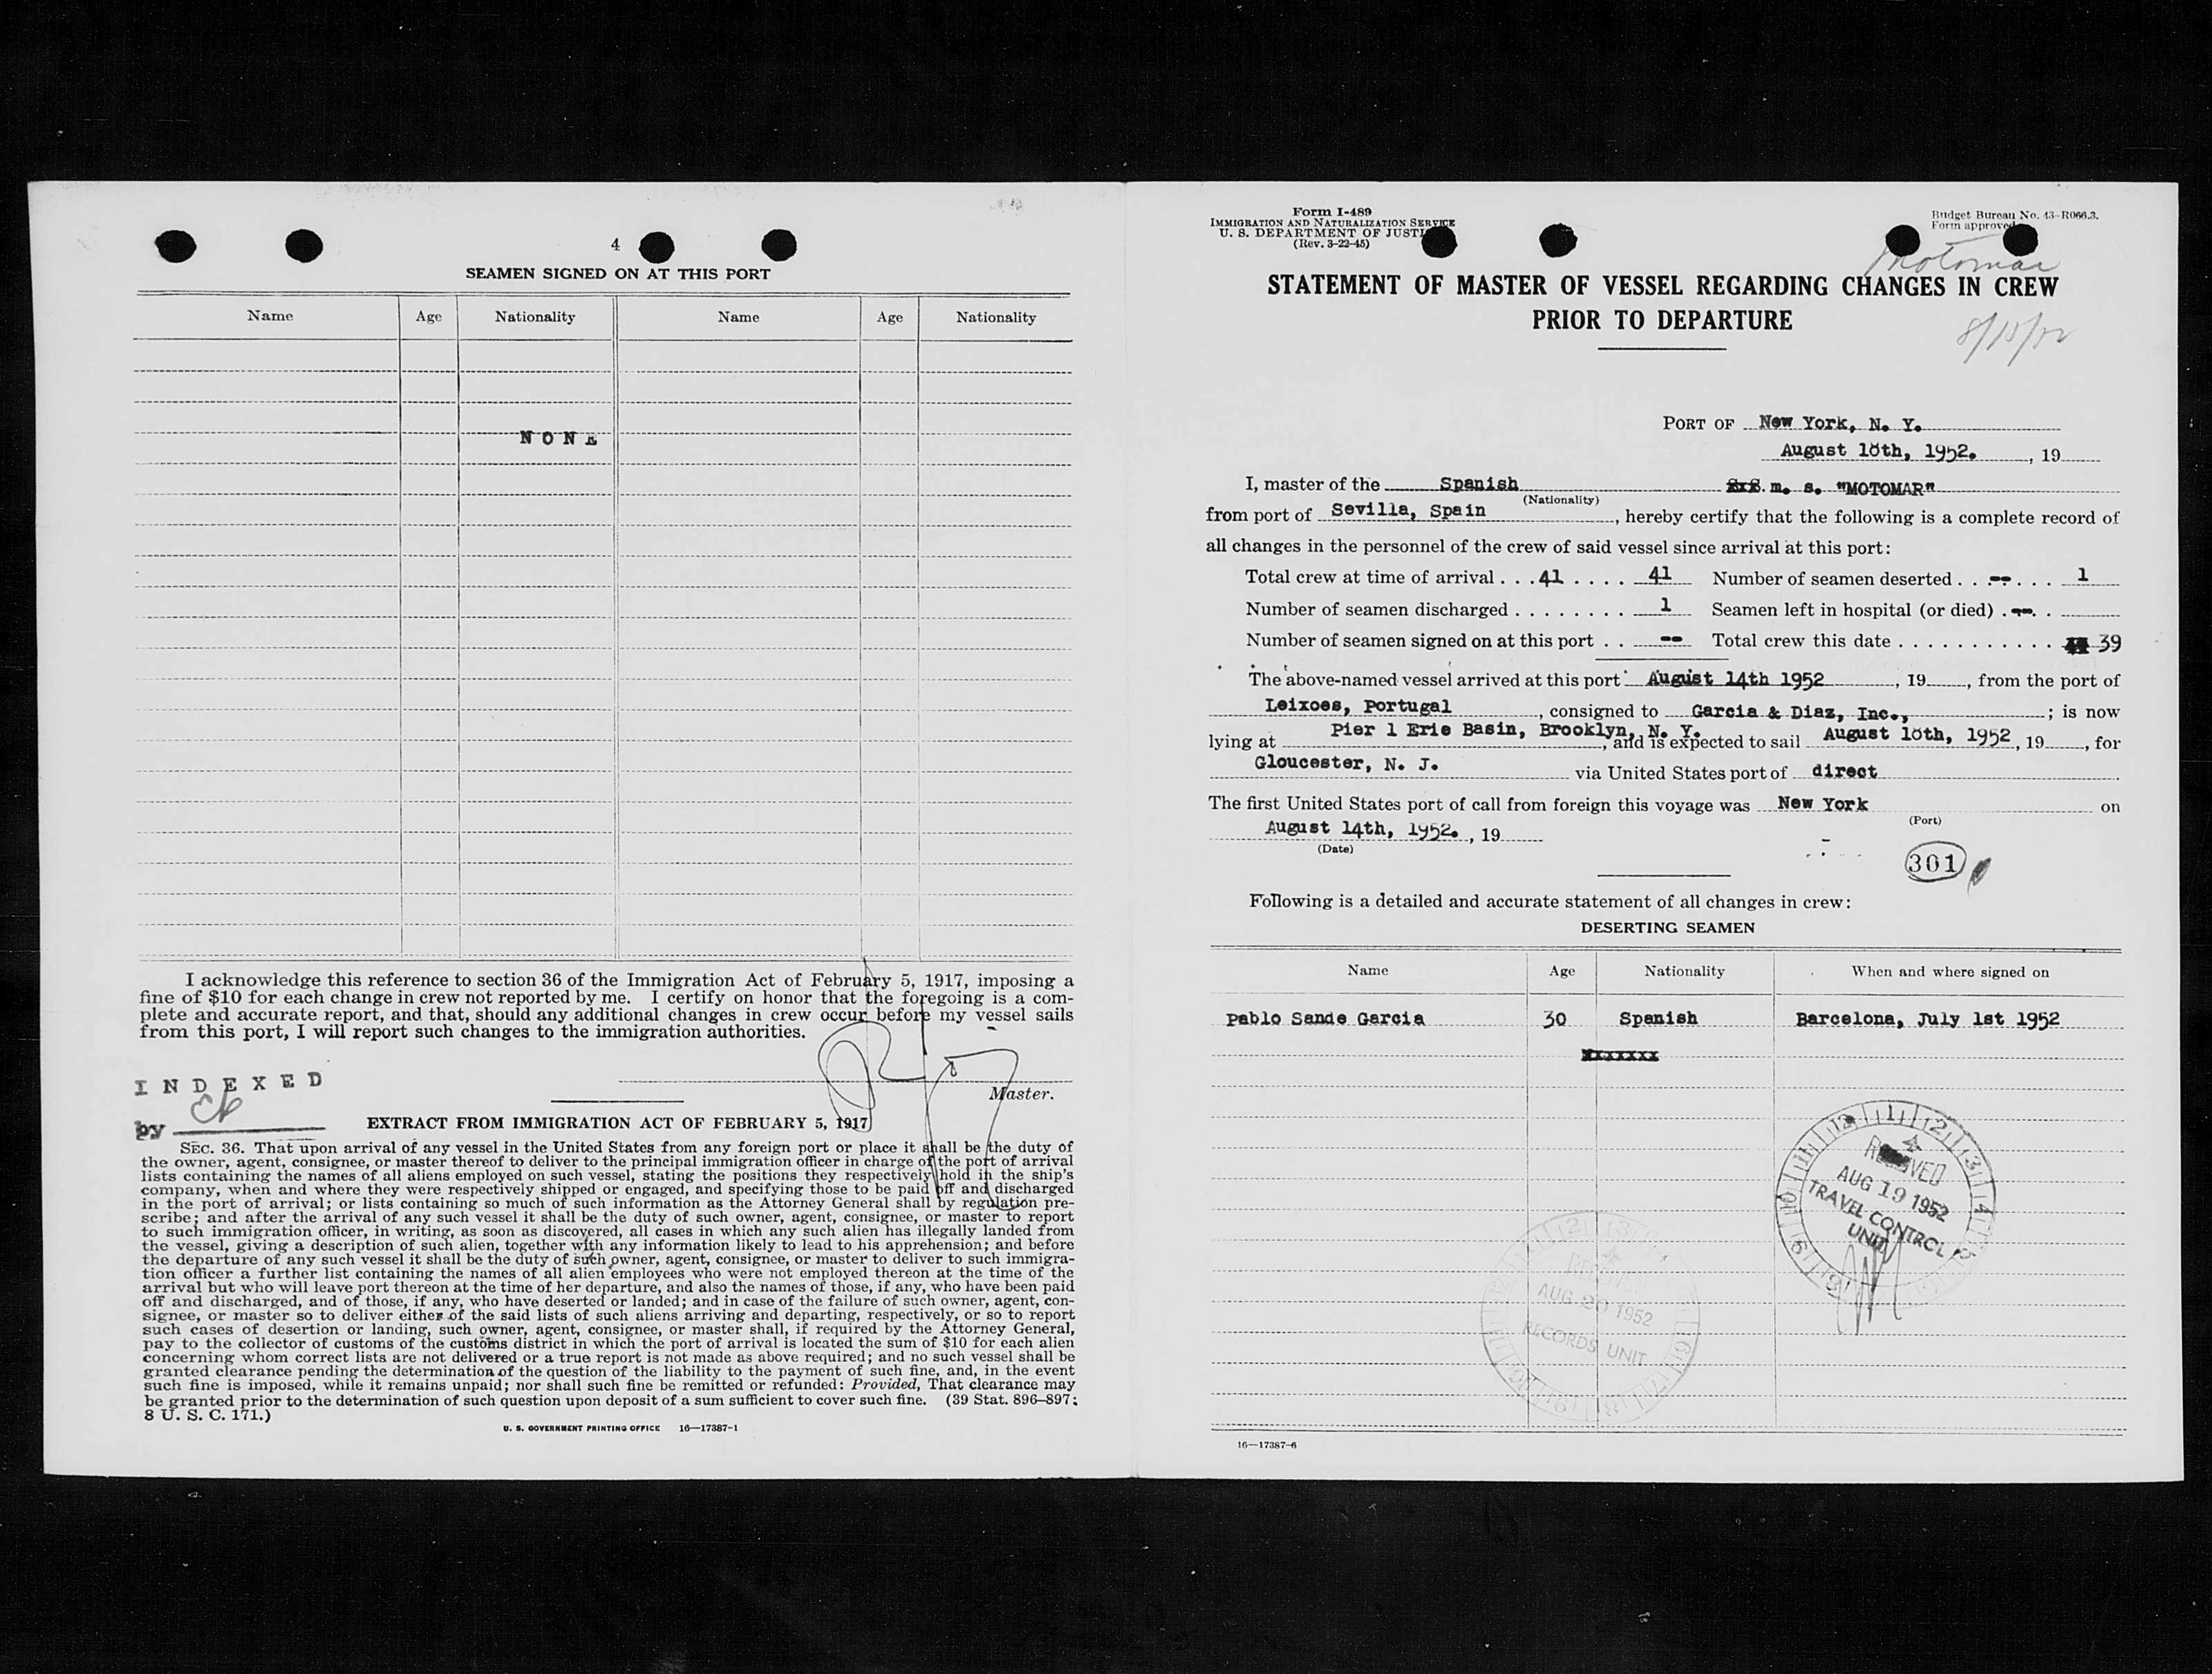 4
SEAMEN SIGNED ON AT THIS PORT
Name Age Nationality Name Age Nationality
NONE
I acknowledge this reference to section 36 of the Immigration Act of February 5, 1917, imposing a
fine of $10 for each change in crew not reported by me. I certify on honor that the foregoing is a com-
plete and accurate report, and that, should any additional changes in crew occur before my vessel sails
from this port, I will report such changes to the immigration authorities.
INDEXED
Master.
by
EXTRACT FROM IMMIGRATION ACT OF FEBRUARY 5, 1917
SEC. 36. That upon arrival of any vessel in the United States from any foreign port or place it shall be the duty of
the owner, agent, consignee, or master thereof to deliver to the principal immigration officer in charge of the port of arrival
lists containing the names of all aliens employed on such vessel, stating the positions they respectively hold in the ship's
company, when and where they were respectively shipped or engaged, and specifying those to be paid off and discharged
in the port of arrival; or lists containing so much of such information as the Attorney General shall by regulation pre-
scribe; and after the arrival of any such vessel it shall be the duty of such owner, agent, consignee, or master to report
to such immigration officer, in writing, as soon as discovered, all cases in which any such alien has illegally landed from
the vessel, giving a description of such alien, together with any information likely to lead to his apprehension; and before
the departure of any such vessel it shall be the duty of such owner, agent, consignee, or master to deliver to such immigra-
tion officer a further list containing the names of all alien employees who were not employed thereon at the time of the
arrival but who will leave port thereon at the time of her departure, and also the names of those, if any, who have been paid
off and discharged, and of those, if any, who have deserted or landed; and in case of the failure of such owner, agent, con-
signee, or master so to deliver either of the said lists of such aliens arriving and departing, respectively, or so to report
such cases of desertion or landing, such owner, agent, consignee, or master shall, if required by the Attorney General,
pay to the collector of customs of the customs district in which the port of arrival is located the sum of $10 for each alien
concerning whom correct lists are not delivered or a true report is not made as above required; and no such vessel shall be
granted clearance pending the determination of the question of the liability to the payment of such fine, and, in the event
such fine is imposed, while it remains unpaid; nor shall such fine be remitted or refunded: Provided, That clearance may
be granted prior to the determination of such question upon deposit of a sum sufficient to cover such fine. (39 Stat. 896–897;
8 U. S. C. 171.)
U. S. GOVERNMENT PRINTING OFFICE 16—17387-1
Form I-489
IMMIGRATION AND NATURALIZATION SERVICE
U. S. DEPARTMENT OF JUSTI
(Rev. 3-22-45)
Budget Bureau No. 43-R066.3.
Form approved
Motomar
STATEMENT OF MASTER OF VESSEL REGARDING CHANGES IN CREW
PRIOR TO DEPARTURE
PORT OF New York, N. Y.
August 18th, 1952. , 19
I, master of the Spanish m. s. "MOTOMAR"
(Nationality)
from port of Sevilla, Spain , hereby certify that the following is a complete record of
all changes in the personnel of the crew of said vessel since arrival at this port:
Total crew at time of arrival . . . 41 . . . . 41 Number of seamen deserted . . -- . . . 1
Number of seamen discharged . . . . . . . . 1 Seamen left in hospital (or died) . --. .
Number of seamen signed on at this port . . -- Total crew this date . . . . . . . . . . . . 39
The above-named vessel arrived at this port August 14th 1952 , 19 , from the port of
Leixoes, Portugal , consigned to Garcia & Diaz, Inc., ; is now
lying at Pier 1 Erie Basin, Brooklyn, N. Y. , and is expected to sail August 18th, 1952 , 19 , for
Gloucester, N. J. via United States port of direct
The first United States port of call from foreign this voyage was New York on
(Port)
August 14th, 1952. , 19
(Date)
301
Following is a detailed and accurate statement of all changes in crew:
DESERTING SEAMEN
Name Age Nationality When and where signed on
Pablo Sande Garcia 30 Spanish Barcelona, July 1st 1952
xxxxxxx
RECEIVED
AUG 19 1952
TRAVEL CONTROL
UNIT
RECEIVED
AUG 20 1952
RECORDS UNIT
16—17387-6